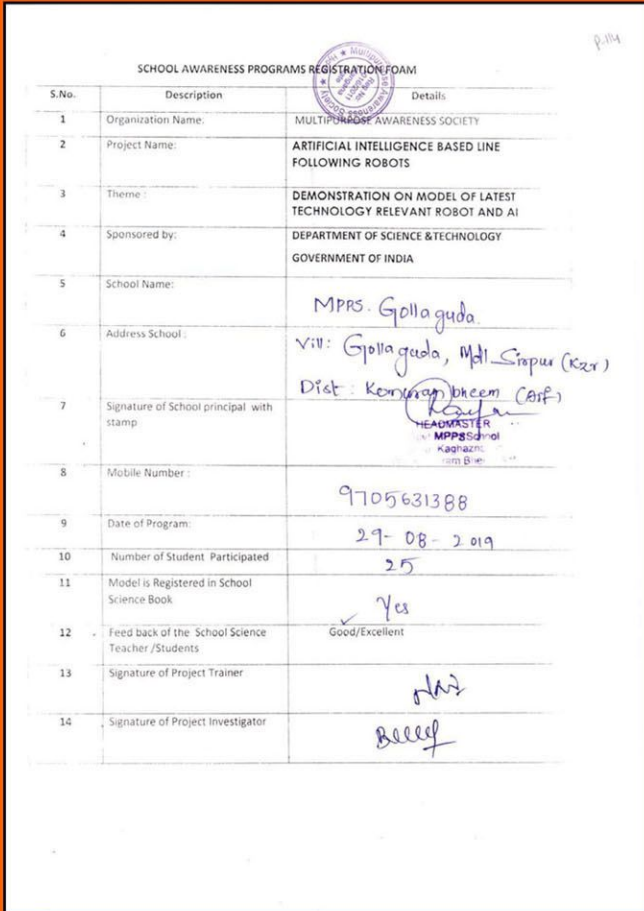 P.114
SCHOOL AWARENESS PROGRAMS REGISTRATION FOAM
S.No. Description Details
1 Organization Name: MULTIPURPOSE AWARENESS SOCIETY
2 Project Name: ARTIFICIAL INTELLIGENCE BASED LINE
FOLLOWING ROBOTS
3 Theme : DEMONSTRATION ON MODEL OF LATEST
TECHNOLOGY RELEVANT ROBOT AND AI
4 Sponsored by: DEPARTMENT OF SCIENCE &TECHNOLOGY
GOVERNMENT OF INDIA
5 School Name: MPPS. Gollaguda.
6 Address School : Vill: Gollaguda, Mdl Sirpur (Kzr)
Dist : Komuram bheem (Asf)
7 Signature of School principal with
stamp
HEADMASTER
MPPS School
Kaghazn
8 Mobile Number : 9705631388
9 Date of Program: 29-08-2019
10 Number of Student Participated 25
11 Model is Registered in School
Science Book Yes
12 Feed back of the School Science
Teacher /Students Good/Excellent
13 Signature of Project Trainer
14 Signature of Project Investigator